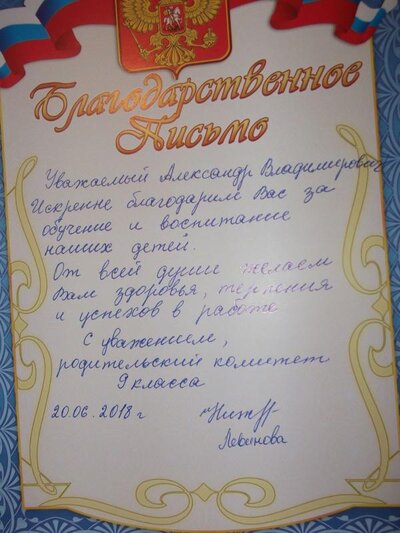 Благодарственное
Письмо
Уважаемый Александр Владимирович
Искренне благодарим Вас за
обучение и воспитание
наших детей.
От всей души желаем
Вам здоровья, терпения
и успехов в работе
С уважением,
родительский комитет
9 класса
20.06.2018 г
Левинова